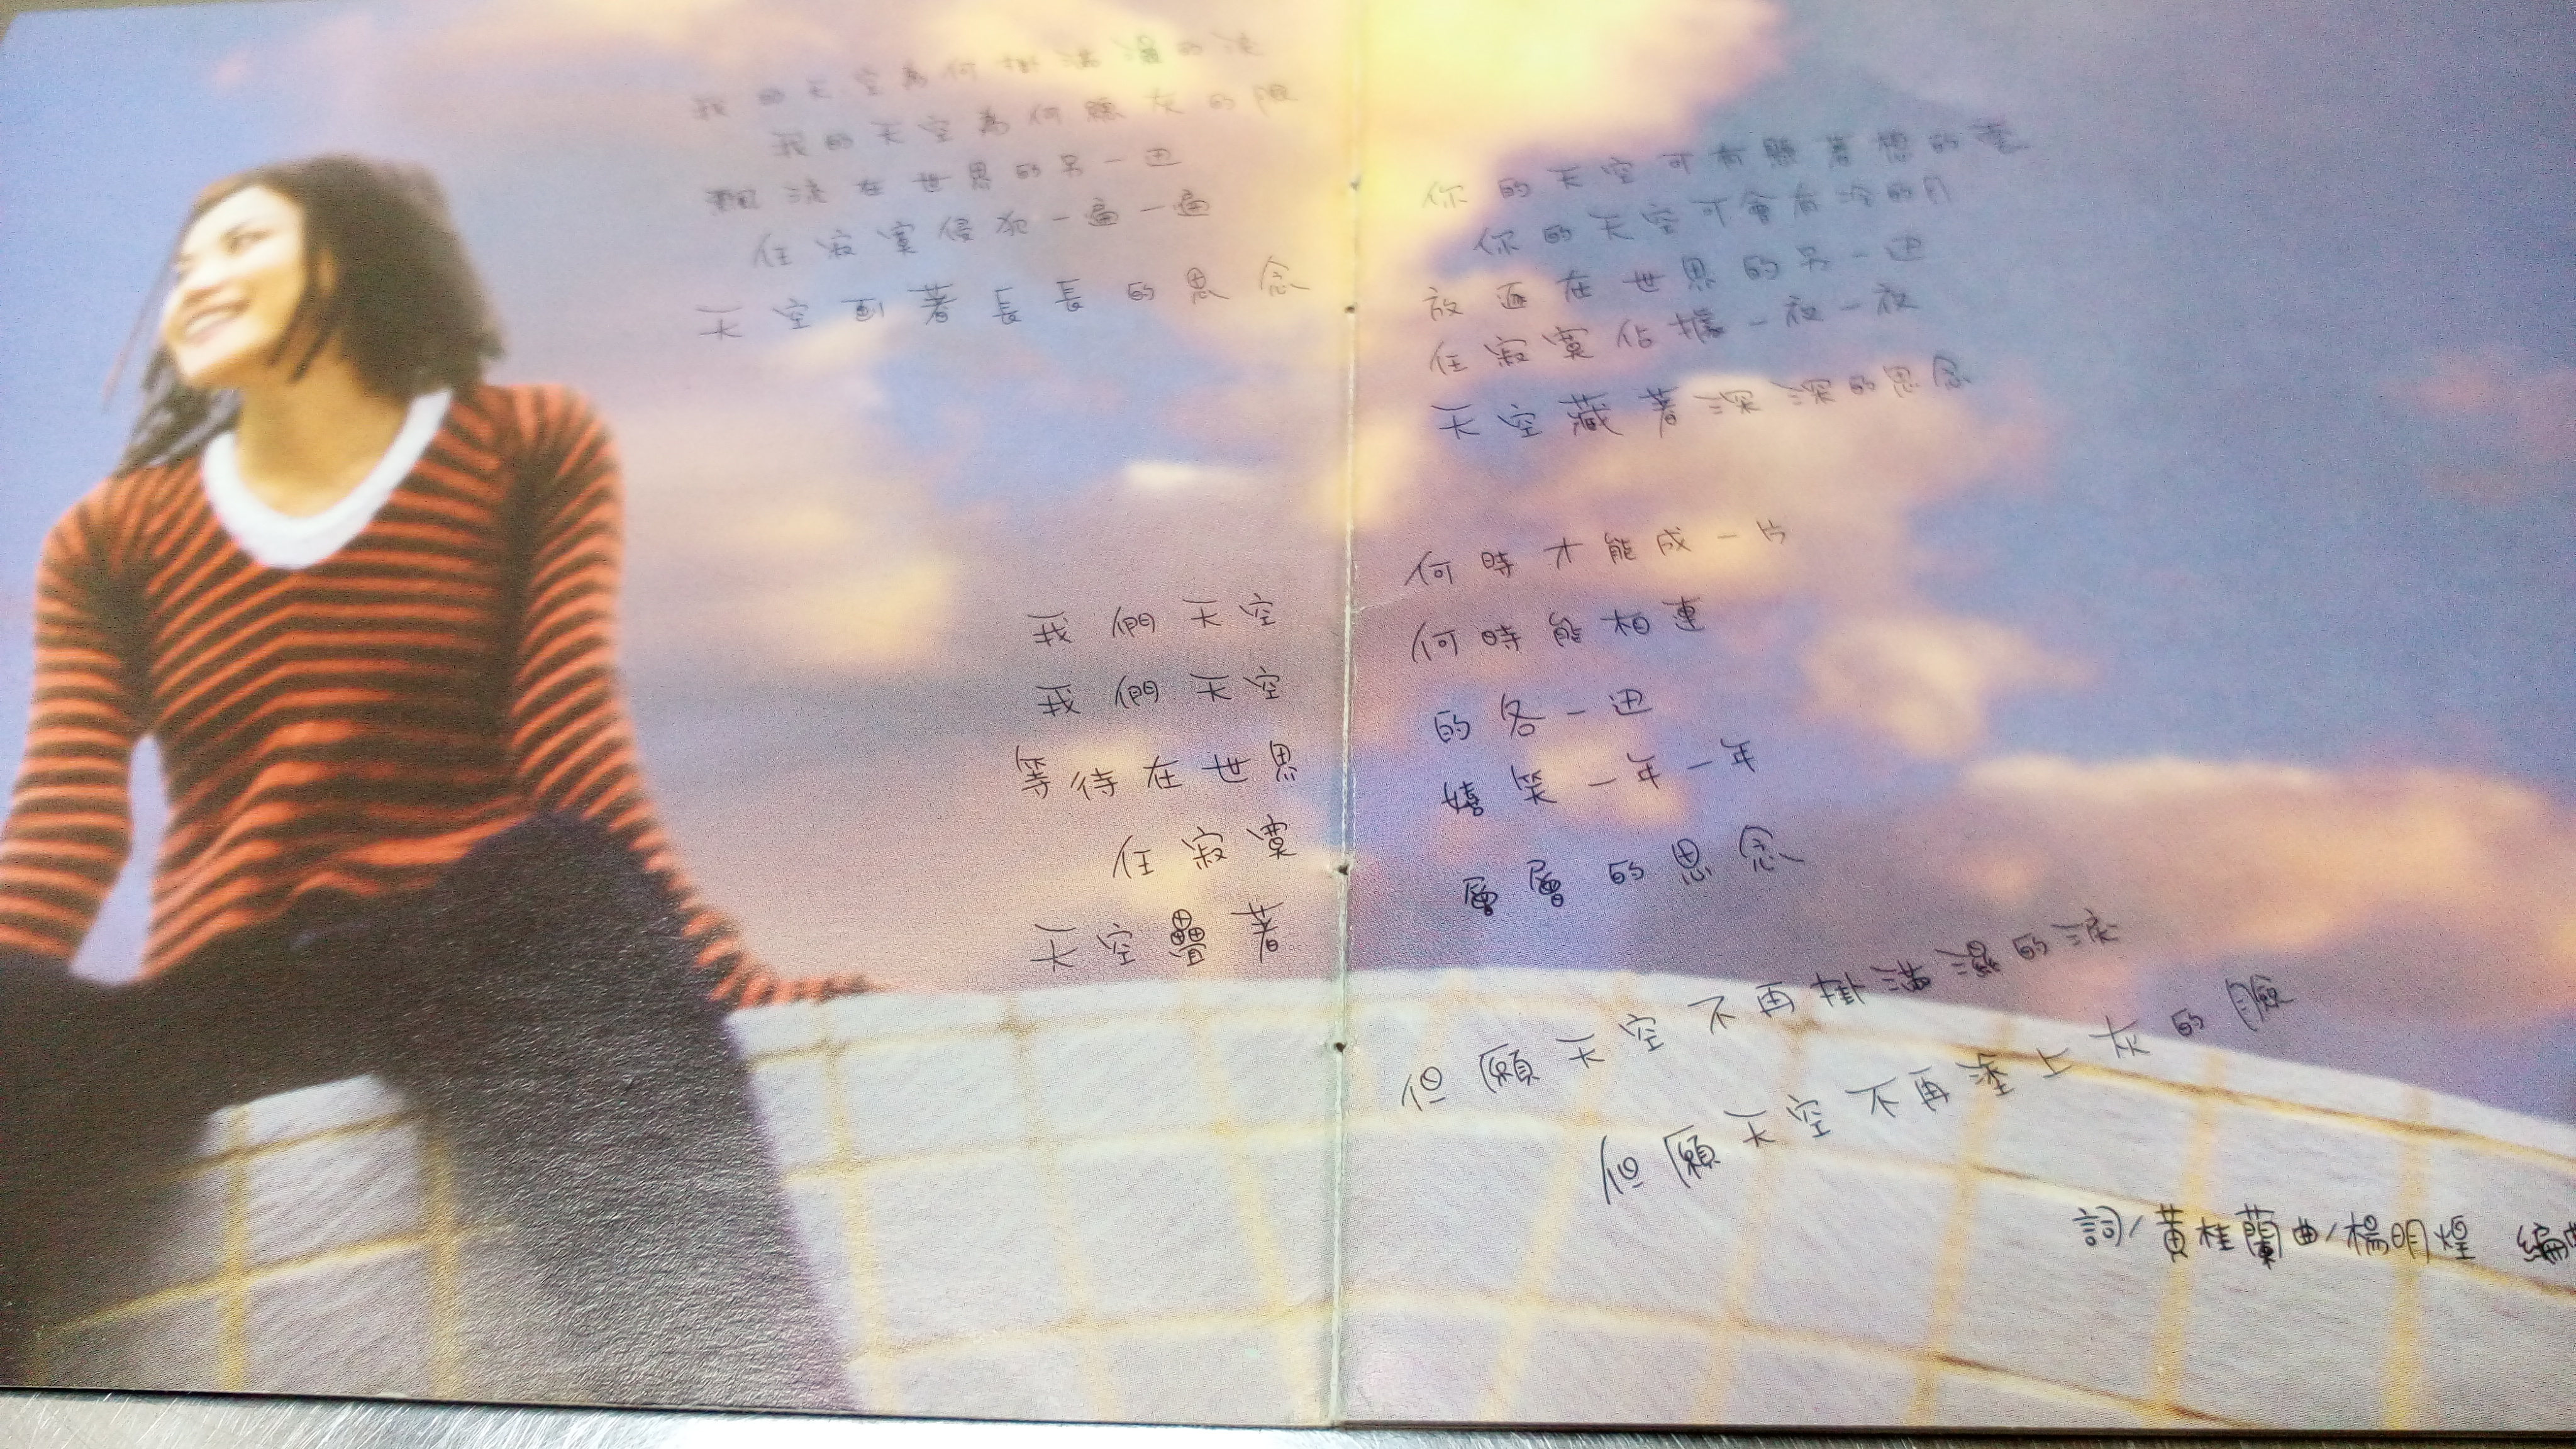 我的天空為何掛滿濕的淚
我的天空為何總灰的臉
飄流在世界的另一邊
任寂寞侵犯一遍一遍
天空劃著長長的思念
你的天空可有懸著想的雲
你的天空可會有冷的月
放逐在世界的另一邊
任寂寞佔據一夜一夜
天空藏著深深的思念
我們天空 何時才能成一片
我們天空 何時能相連
等待在世界 的各一邊
任寂寞 嬉笑一年一年
天空疊著 層層的思念
但願天空不再掛滿濕的淚
但願天空不再塗上灰的臉
詞/黃桂蘭曲/楊明煌 編曲